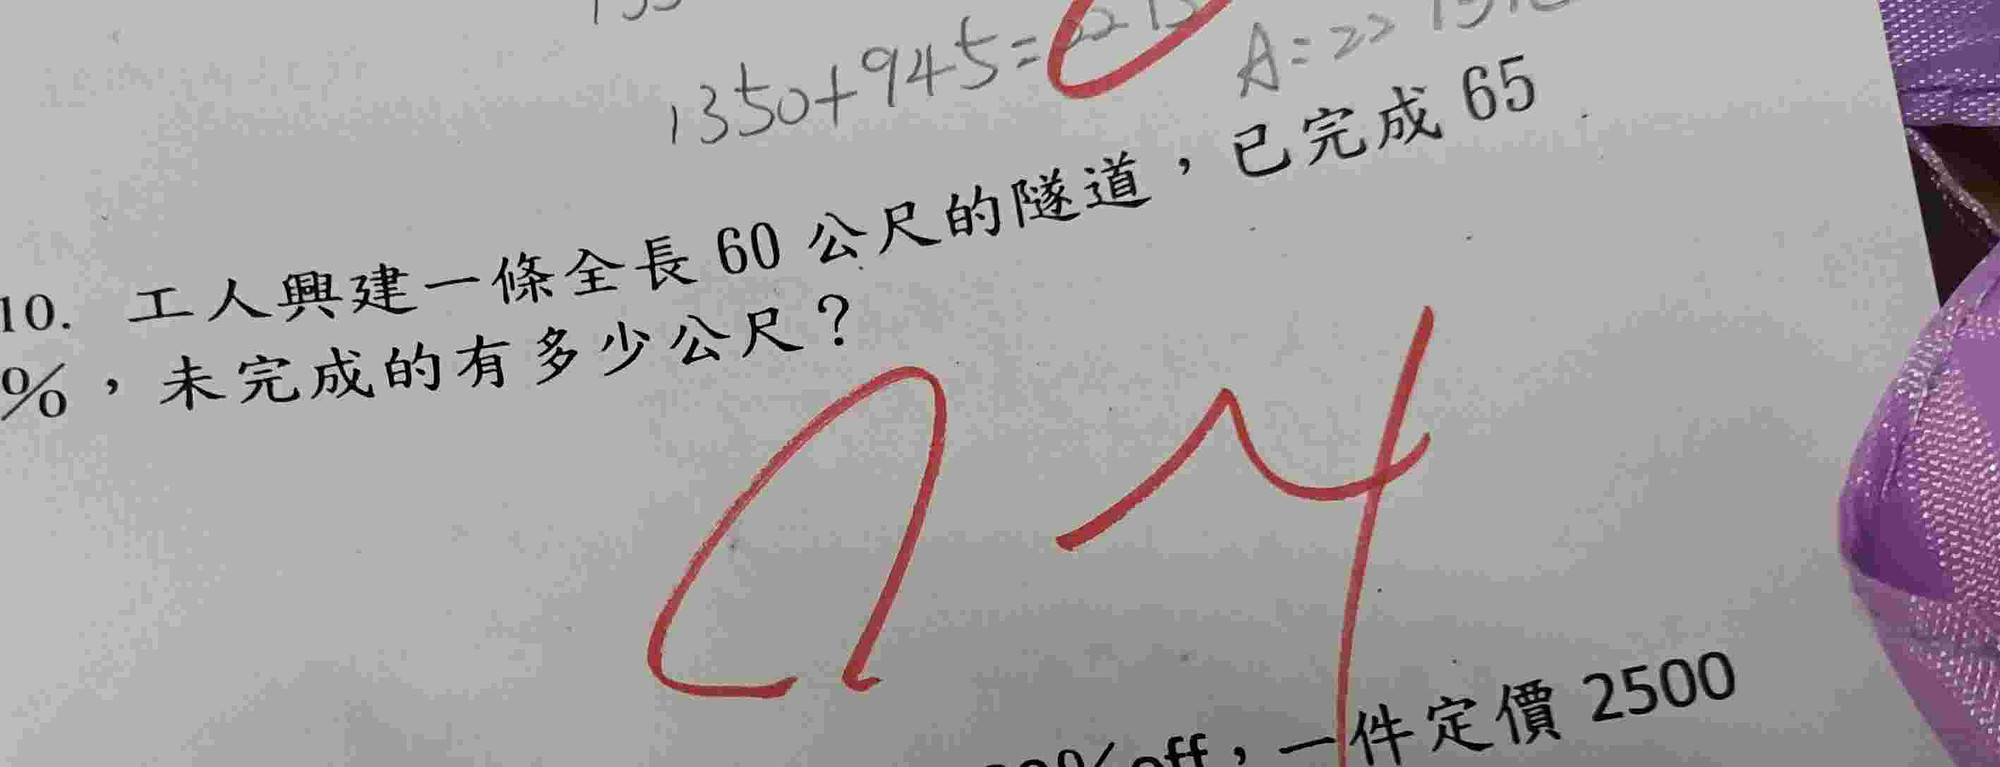 1350+945=
A=22
10. 工人興建一條全長 60 公尺的隧道，已完成 65
%，未完成的有多少公尺？
off，一件定價 2500